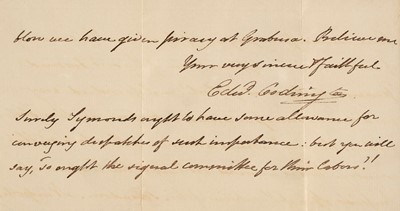 blow we have given piracy at Grabusa. Believe me
Your very sincere & faithful
Edwd. Codrington
Surely Symonds ought to have some allowance for
conveying dispatches of such importance: but you will
say, so ought the signal committee for their labors?!